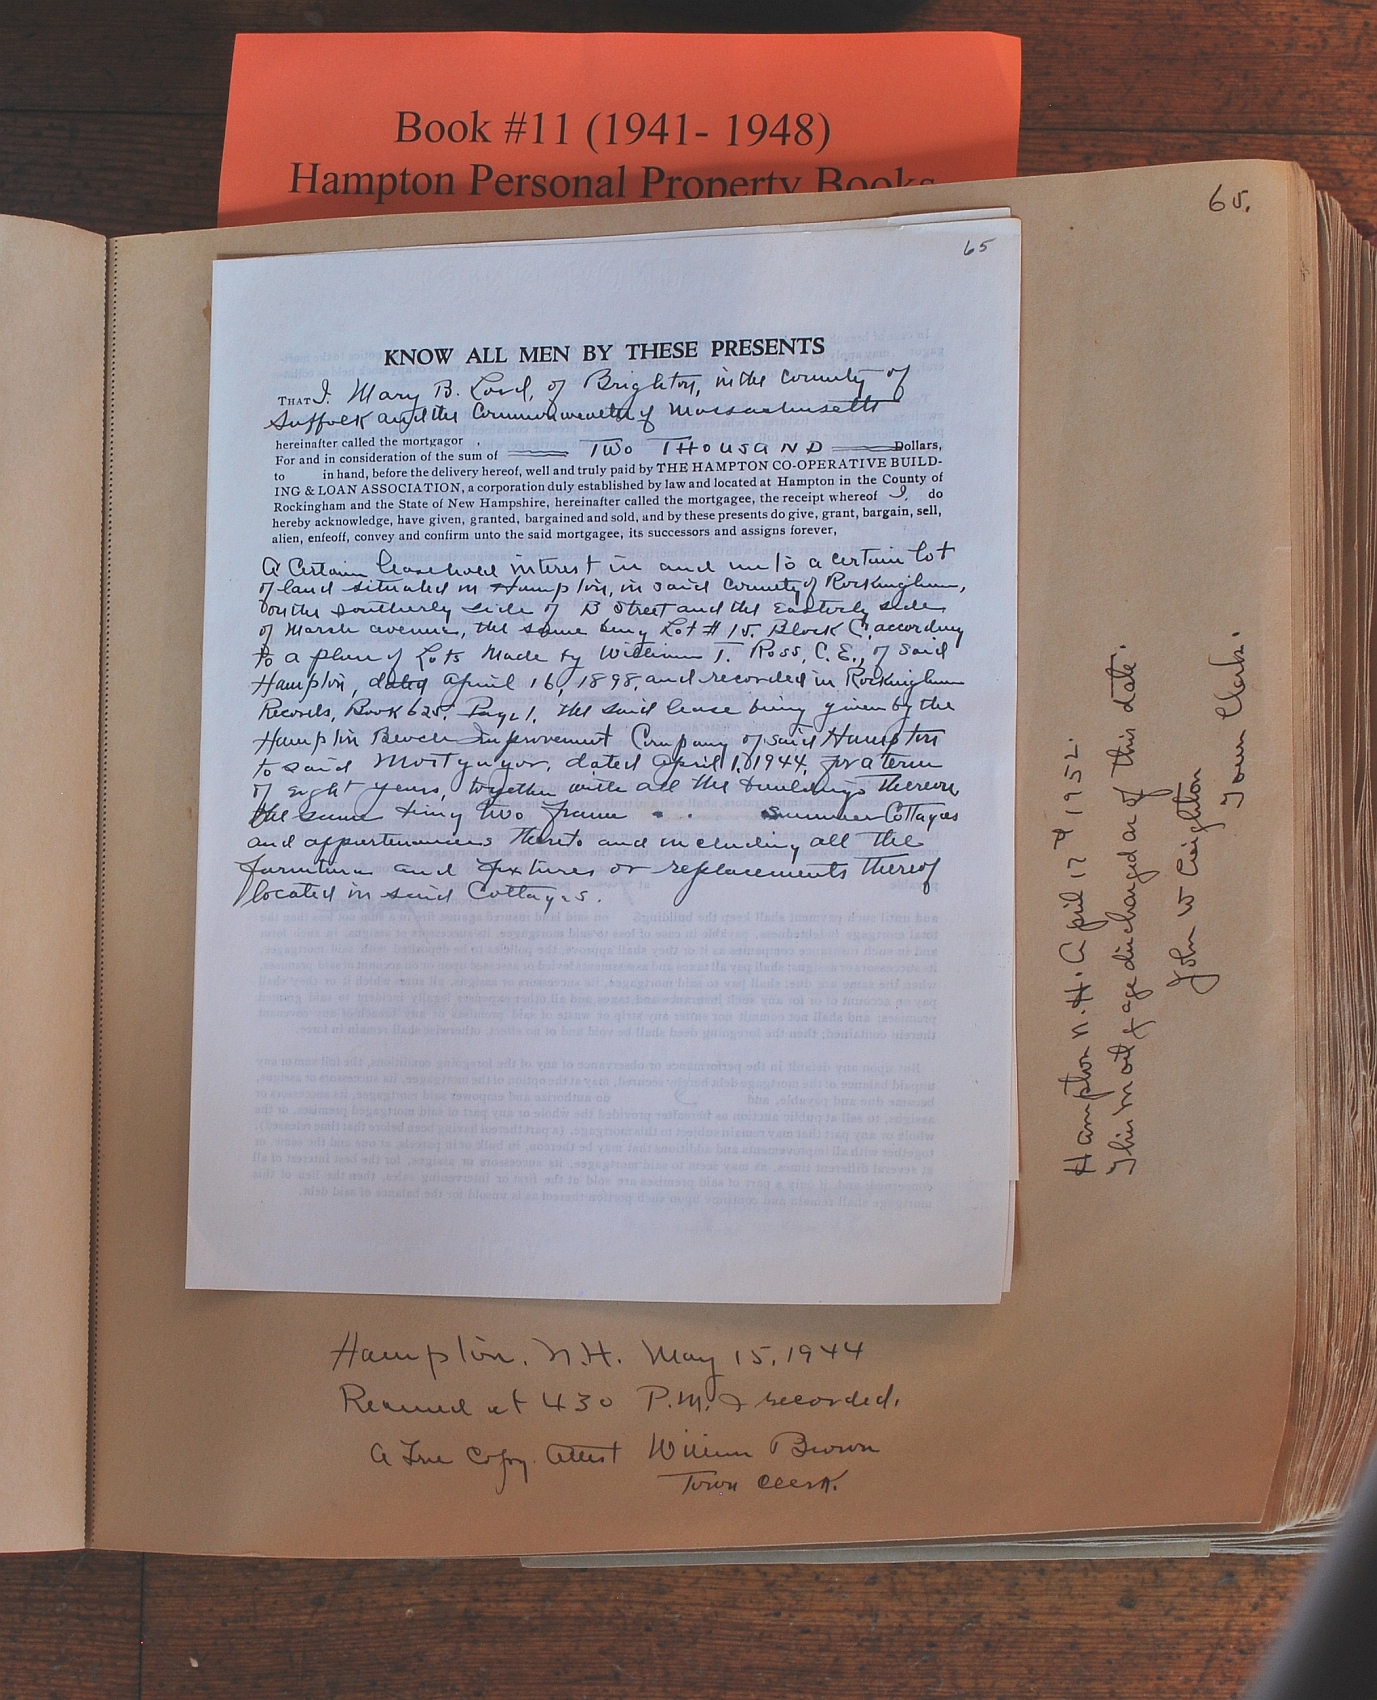 Book #11 (1941- 1948)
Hampton Personal Property Books
65.
65
KNOW ALL MEN BY THESE PRESENTS
THAT I, Mary B. Lord, of Brighton, in the County of
Suffolk and the Commonwealth of Massachusetts
hereinafter called the mortgagor ,
For and in consideration of the sum of TWO THOUSAND Dollars,
to in hand, before the delivery hereof, well and truly paid by THE HAMPTON CO-OPERATIVE BUILD-
ING & LOAN ASSOCIATION, a corporation duly established by law and located at Hampton in the County of
Rockingham and the State of New Hampshire, hereinafter called the mortgagee, the receipt whereof I, do
hereby acknowledge, have given, granted, bargained and sold, and by these presents do give, grant, bargain, sell,
alien, enfeoff, convey and confirm unto the said mortgagee, its successors and assigns forever,
A Certain leasehold interest in and unto a certain lot
of land situated in Hampton, in said County of Rockingham,
on the Southerly side of B Street and the Easterly side
of Marsh avenue, the same being Lot # 15. Block C, according
to a plan of Lots Made by William T. Ross, C.E., of said
Hampton, dated April 16, 1898, and recorded in Rockingham
Records, Book 625, Page 1. The said lease being given by the
Hampton Beach Improvement Company of said Hampton
to said Mortgagor, dated April 1, 1944, for a term
of eight years, together with all the buildings thereon,
the same being two frame Summer Cottages
and appurtenances thereto and including all the
furniture and fixtures or replacements thereof
located in said Cottages.
Hampton, N.H. May 15, 1944
Received at 430 P.M. & recorded.
A True Copy. Attest William Brown
Town Clerk.
Hampton N.H. April 17th 1952.
This mortgage discharged as of this date.
John W Creighton
Town Clerk.